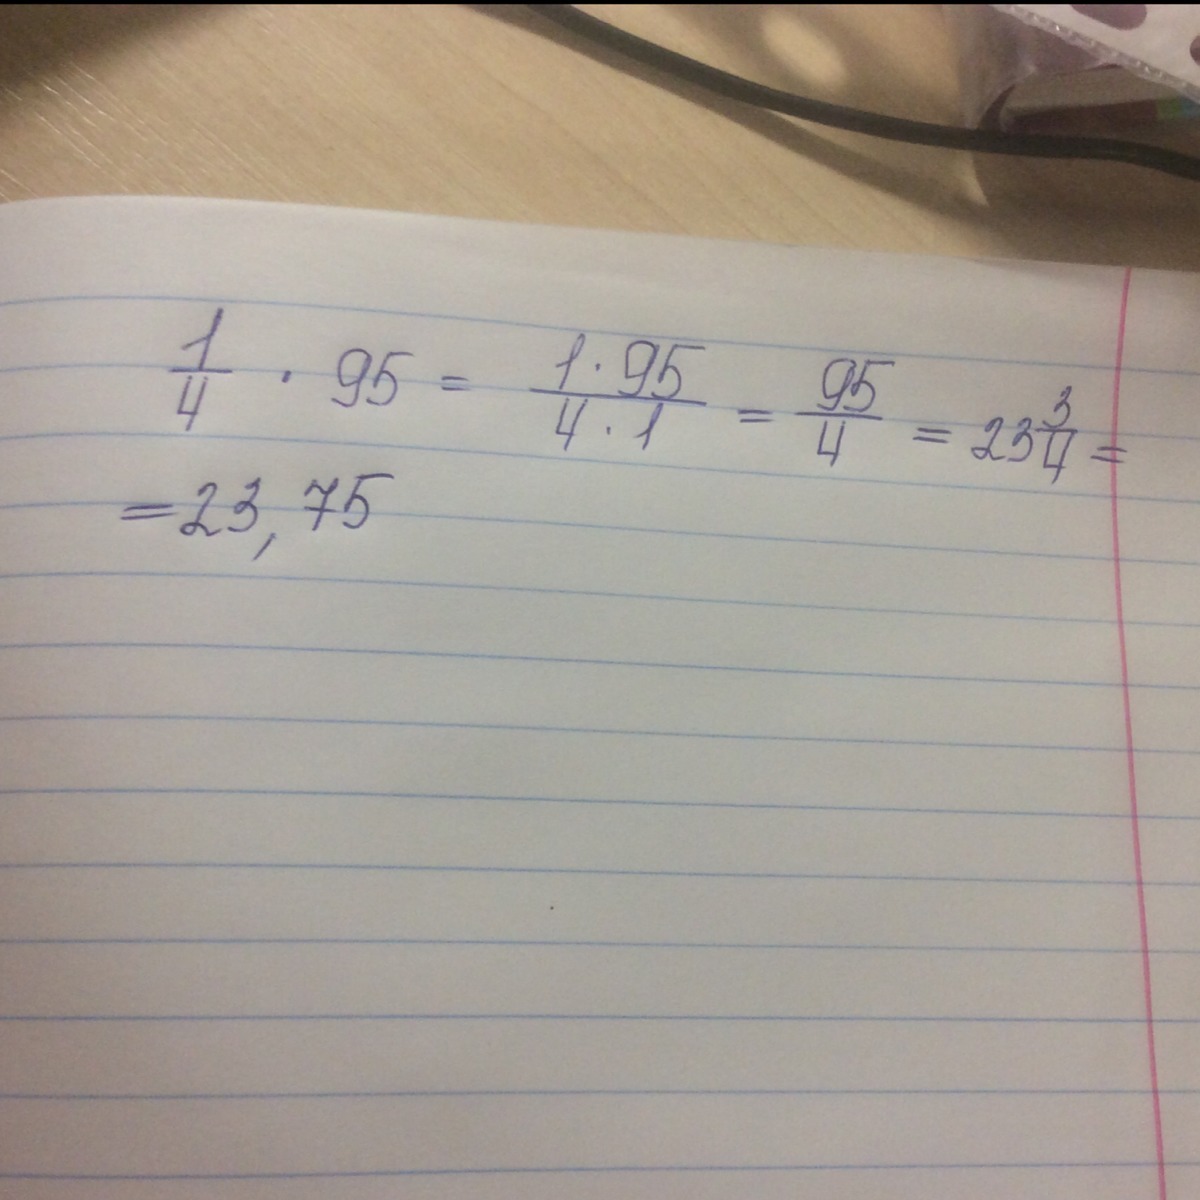 1/4 · 95 = 1·95/4·1 = 95/4 = 23 3/4 =
= 23,75